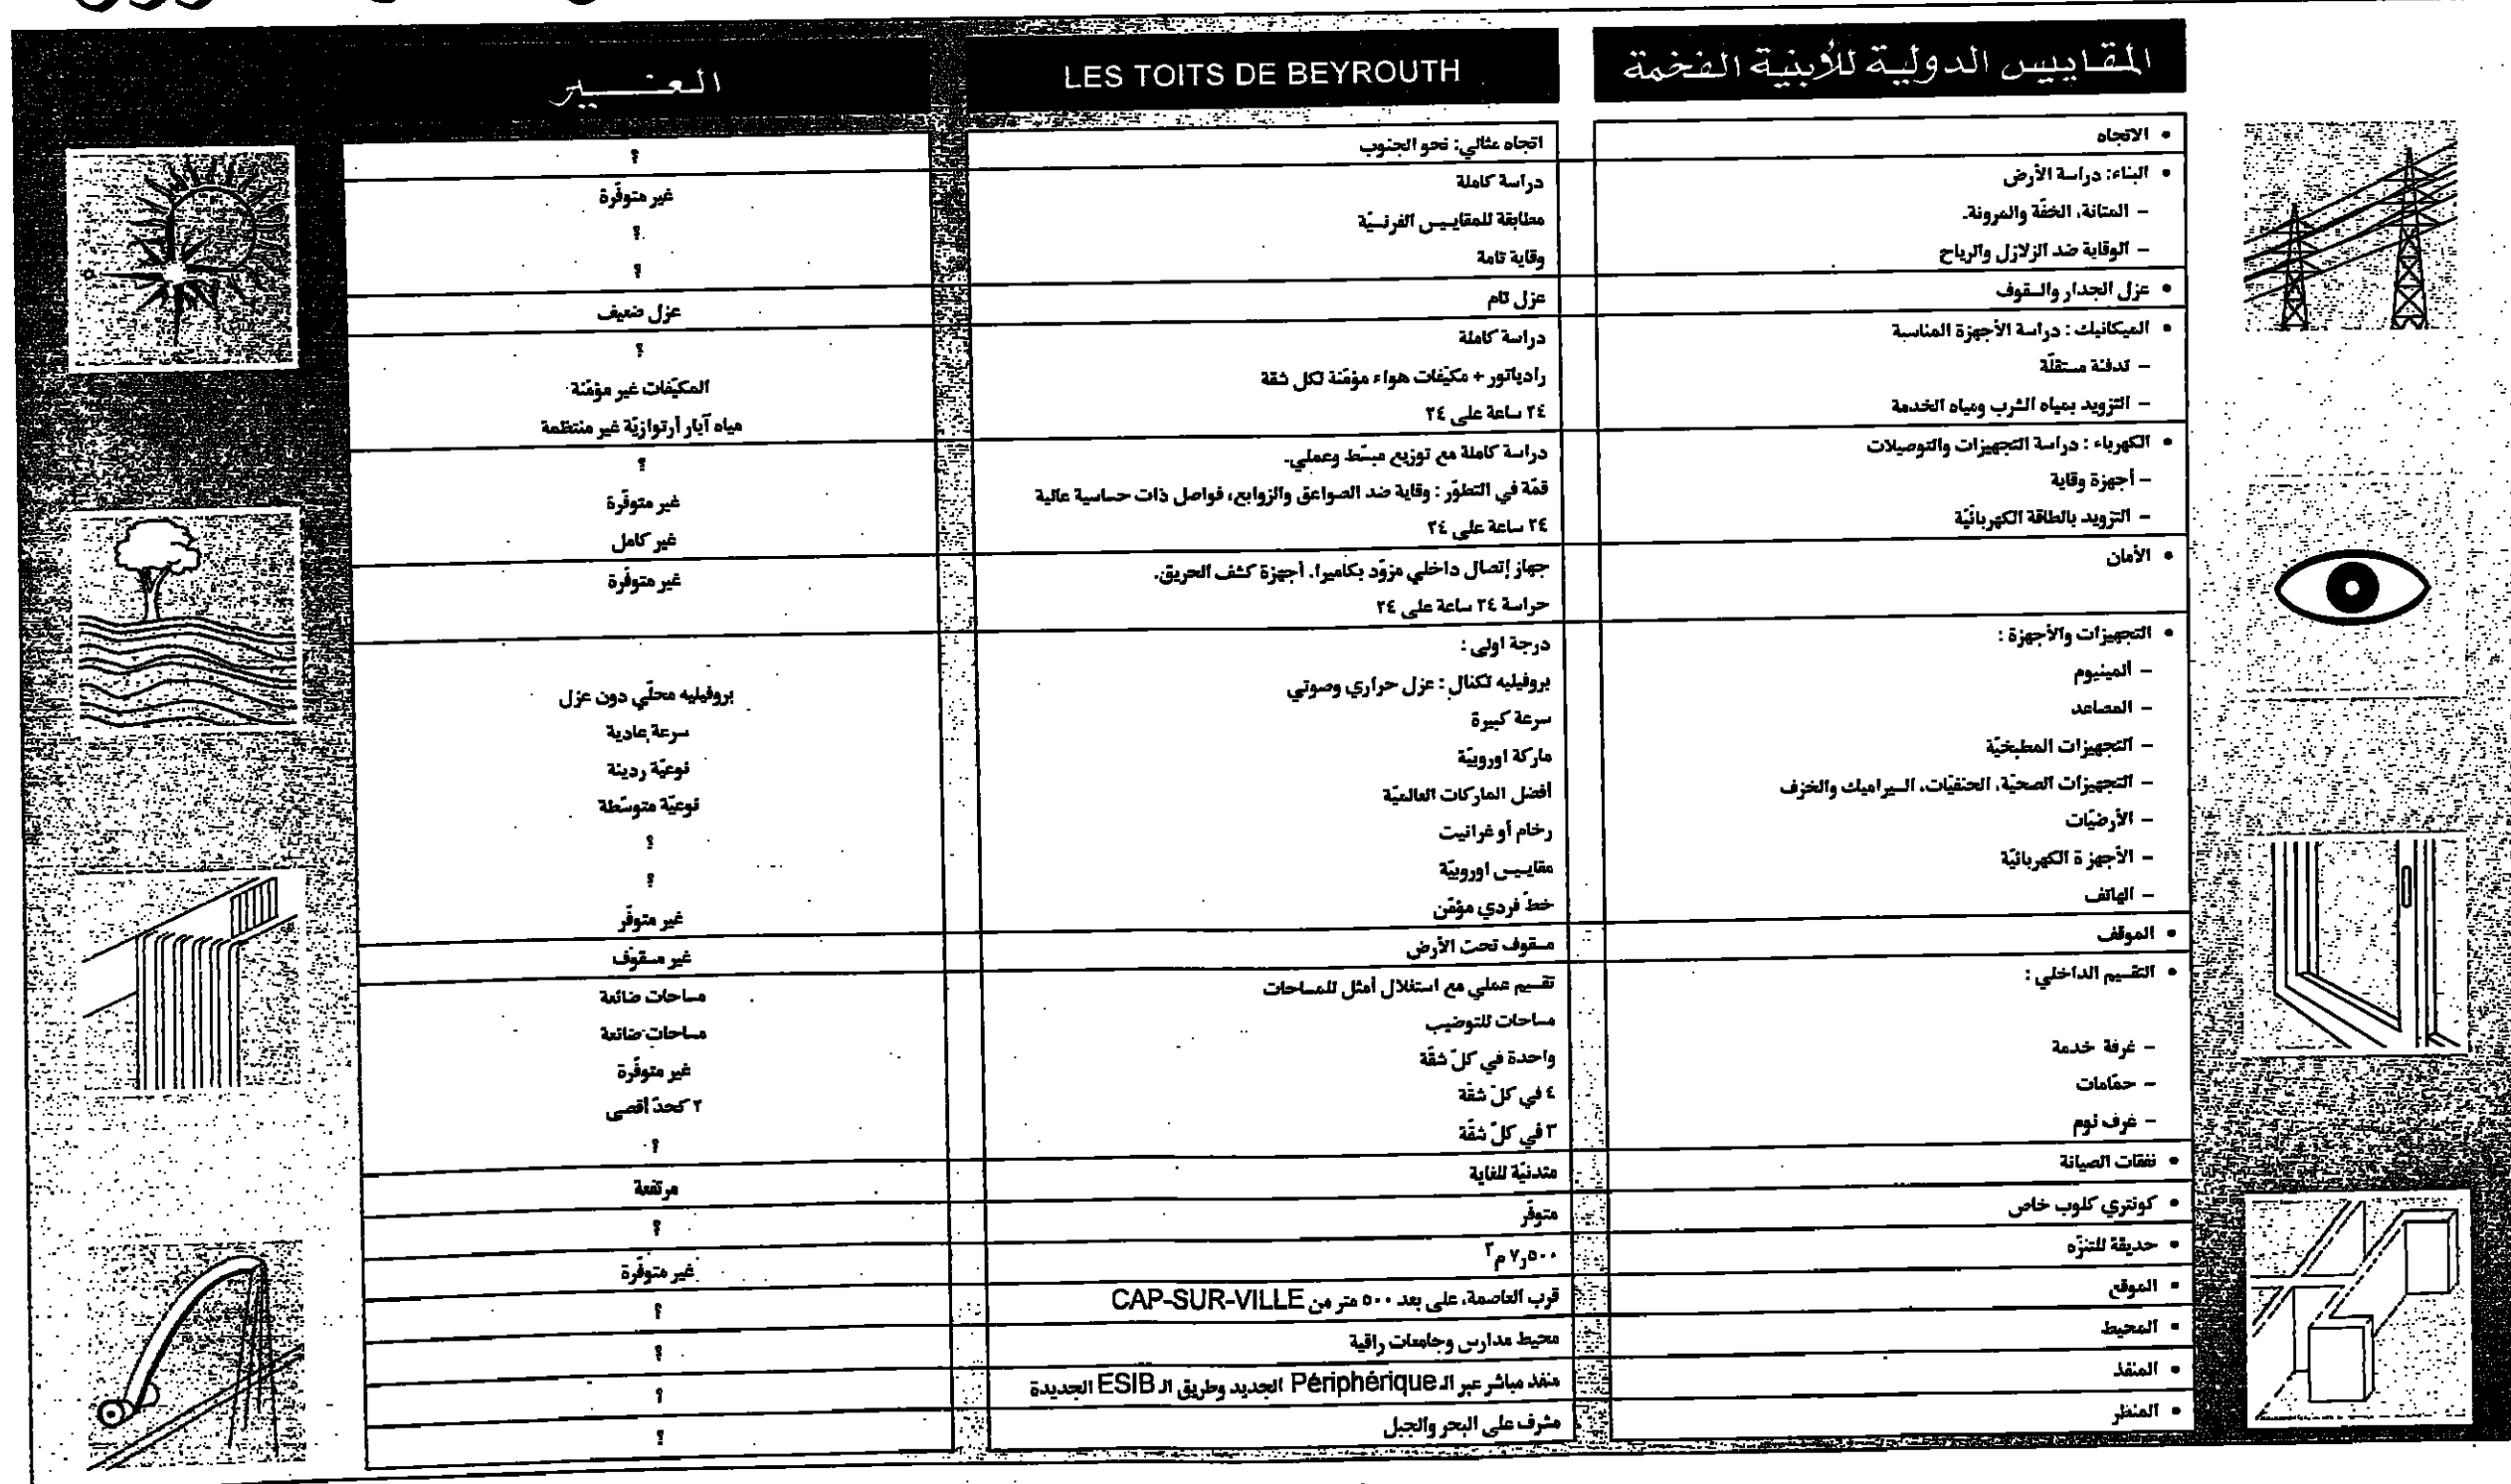 المقاييس الدولية للأبنية الفخمة
LES TOITS DE BEYROUTH
العنبر
• الاتجاه
اتجاه مثالي: نحو الجنوب
؟
• البناء: دراسة الأرض
دراسة كاملة
غير متوفّرة
– المتانة، الخفّة والمرونة.
مطابقة للمقاييس الفرنسيّة
؟
– الوقاية ضد الزلازل والرياح
وقاية تامة
؟
• عزل الجدار والسقوف
عزل تام
عزل ضعيف
• الميكانيك : دراسة الأجهزة المناسبة
دراسة كاملة
؟
– تدفئة مستقلّة
رادياتور + مكيّفات هواء مؤمّنة لكل شقة
المكيّفات غير مؤمّنة
– التزويد بمياه الشرب ومياه الخدمة
٢٤ ساعة على ٢٤
مياه آبار أرتوازيّة غير منتظمة
• الكهرباء : دراسة التجهيزات والتوصيلات
دراسة كاملة مع توزيع مبسّط وعملي.
؟
– أجهزة وقاية
قمّة في التطوّر : وقاية ضد الصواعق والزوابع، فواصل ذات حساسية عالية
غير متوفّرة
– التزويد بالطاقة الكهربائيّة
٢٤ ساعة على ٢٤
غير كامل
• الأمان
جهاز إتصال داخلي مزوّد بكاميرا، أجهزة كشف الحريق.
غير متوفّرة
حراسة ٢٤ ساعة على ٢٤
• التجهيزات والأجهزة :
درجة اولى :
– المينيوم
بروفيليه تكنال : عزل حراري وصوتي
بروفيليه محلّي دون عزل
– المصاعد
سرعة كبيرة
سرعة عادية
– التجهيزات المطبخيّة
ماركة اوروبيّة
نوعيّة رديئة
– التجهيزات الصحيّة، الحنفيّات، السيراميك والخزف
أفضل الماركات العالميّة
نوعيّة متوسّطة
– الأرضيّات
رخام أو غرانيت
؟
– الأجهزة الكهربائيّة
مقاييس اوروبيّة
؟
– الهاتف
خطّ فردي مؤمّن
غير متوفّر
• الموقف
مسقوف تحت الأرض
غير مسقوف
• التقسيم الداخلي :
تقسيم عملي مع استغلال أمثل للمساحات
مساحات ضائعة
مساحات للتوضيب
مساحات ضائعة
– غرفة خدمة
واحدة في كلّ شقّة
غير متوفّرة
– حمّامات
٤ في كلّ شقّة
٢ كحدّ أقصى
– غرف نوم
٣ في كلّ شقّة
؟
• نفقات الصيانة
متدنيّة للغاية
مرتفعة
• كونتري كلوب خاص
متوفّر
؟
• حديقة للتنزّه
٧,٥٠٠ م٢
غير متوفّرة
• الموقع
قرب العاصمة، على بعد ٥٠٠ متر من CAP-SUR-VILLE
؟
• المحيط
محيط مدارس وجامعات راقية
؟
• المنفذ
منفذ مباشر عبر الـ Périphérique الجديد وطريق الـ ESIB الجديدة
؟
• المنظر
مشرف على البحر والجبل
؟